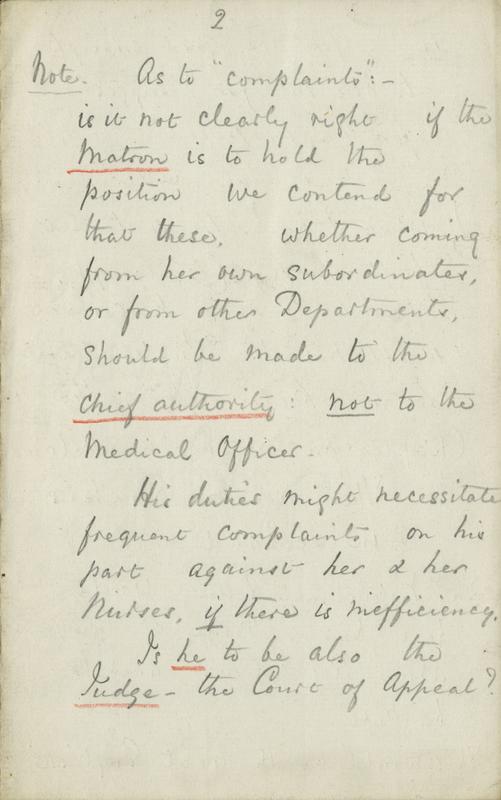 2
Note. As to "complaints":-
is it not clearly right if the
Matron is to hold the
position we contend for
that these, whether coming
from her own subordinates,
or from other Departments,
should be made to the
chief authority: not to the
Medical Officer.
His duties might necessitate
frequent complaints on his
part against her & her
Nurses, if there is inefficiency.
Is he to be also the
Judge - the Court of Appeal?